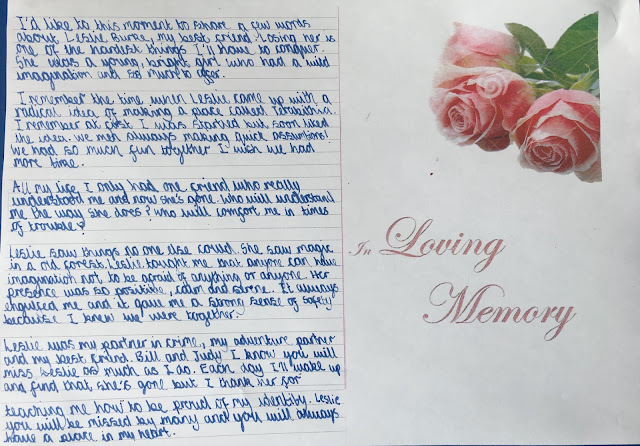 I'd like to this moment to share a few words
about Leslie Burke, my best friend. Losing her is
one of the hardest things I'll have to conquer.
She was a young, bright girl who had a wild
imagination and so much to offer.
I remember the time when Leslie came up with a
radical idea of making a place called Tarabithia.
I remember at first I was startled but soon liked
the idea. We men always making quick assumtions!
We had so much fun together I wish we had
more time.
All my life I only had one friend who really
understood me and now she's gone. Who will understand
me the way she does? Who will comfort me in times
of trouble?
Leslie saw things no one else could. She saw magic
in a old forest. Leslie tought me that anyone can have
imagination not to be afraid of anything or anyone. Her
presence was so positive, calm and It always
engulfed me and it gave me a strong sense of safety
because I knew we were together.
Leslie was my partner in crime, my adventure partner
and my best friend. Bill and Judy I know you will
miss Leslie as much as I do. Each day I'll wake up
and find that she's gone but I thank her for
teaching me how to be proud of my identity. Leslie
you will be missed by many and you will always
have a place in my heart.
In Loving
Memory